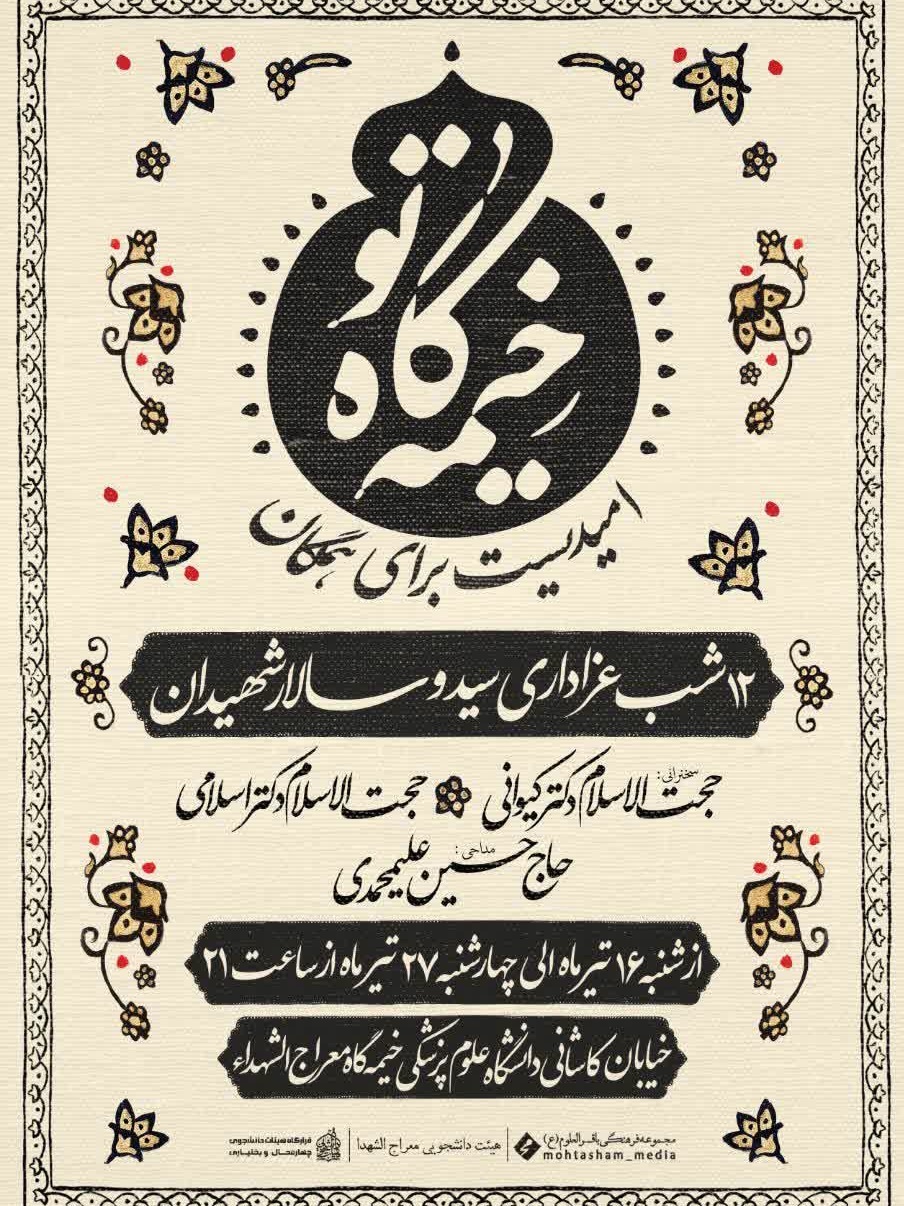 خیمه گاه تو
امیدیست برای همگان
۱۲ شب عزاداری سید و سالار شهیدان
سخنرانی:
حجت الاسلام دکتر کیوانی
حجت الاسلام دکتر اسلامی
مداحی:
حاج حسین علیمحمدی
از شنبه ۱۶ تیر ماه الی چهارشنبه ۲۷ تیر ماه از ساعت ۲۱
خیابان کاشانی دانشگاه علوم پزشکی خیمه گاه معراج الشهداء
مجموعه فرهنگی باقرالعلوم(ع)
mohtasham_media
هیئت دانشجویی معراج الشهدا
قرارگاه هیئات دانشجویی
چهارمحال و بختیاری